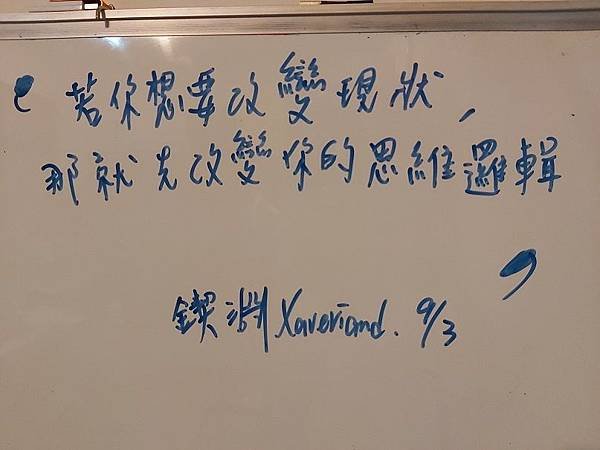 “若你想要改變現狀，
那就先改變你的思維邏輯
”
鍥淵 Xaveriand. 9/3